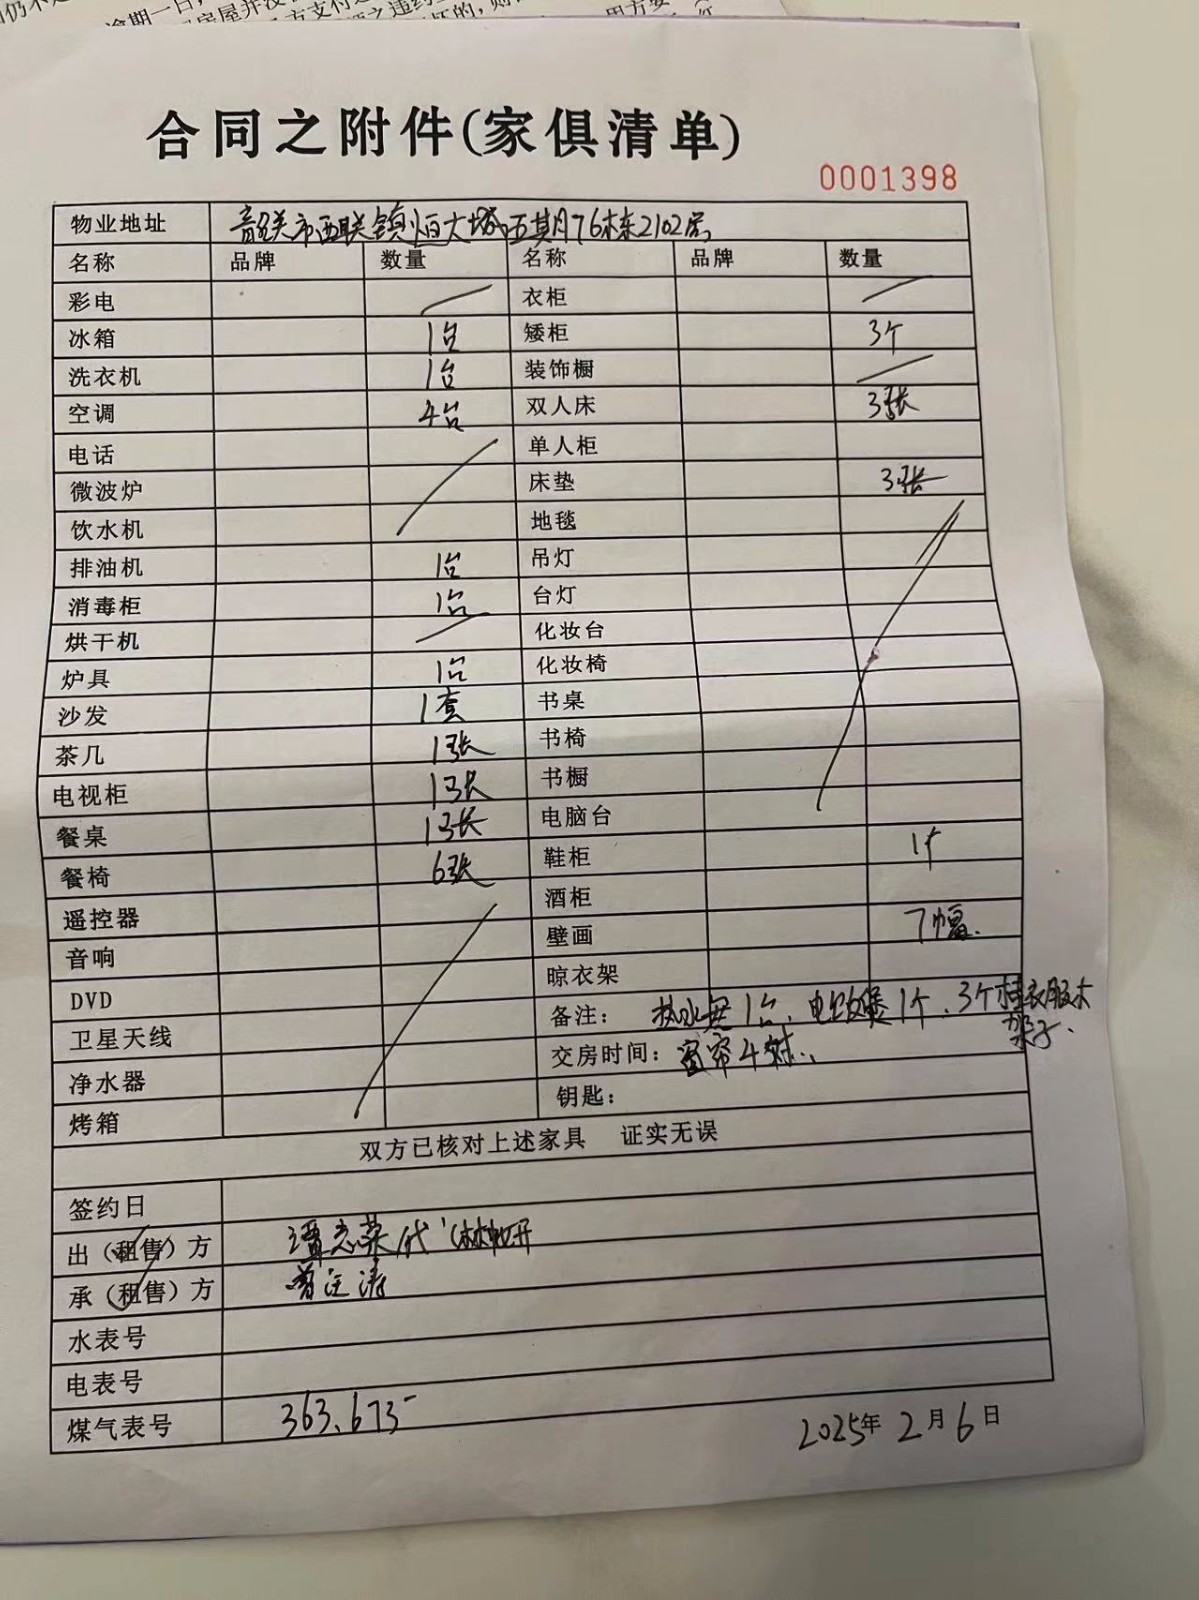 合同之附件(家俱清单)
0001398
物业地址 韶关市西联镇恒大城五期76栋2102房
名称 品牌 数量 名称 品牌 数量
彩电 衣柜
冰箱 1台 矮柜 3个
洗衣机 1台 装饰橱
空调 4台 双人床 3张
电话 单人柜
微波炉 床垫 3张
饮水机 地毯
排油机 1台 吊灯
消毒柜 1台 台灯
烘干机 化妆台
炉具 1台 化妆椅
沙发 1套 书桌
茶几 1张 书椅
电视柜 1张 书橱
餐桌 1张 电脑台
餐椅 6张 鞋柜 1个
遥控器 酒柜
音响 壁画 7幅.
DVD 晾衣架
卫星天线 备注: 热水 1台, 1个, 3个挂衣服木
架子.
净水器 交房时间: 窗帘4对.
烤箱 钥匙:
双方已核对上述家具 证实无误
签约日
出(租售)方 谭志荣代
承(租售)方 曾
水表号
电表号
煤气表号 363.673
2025年2月6日